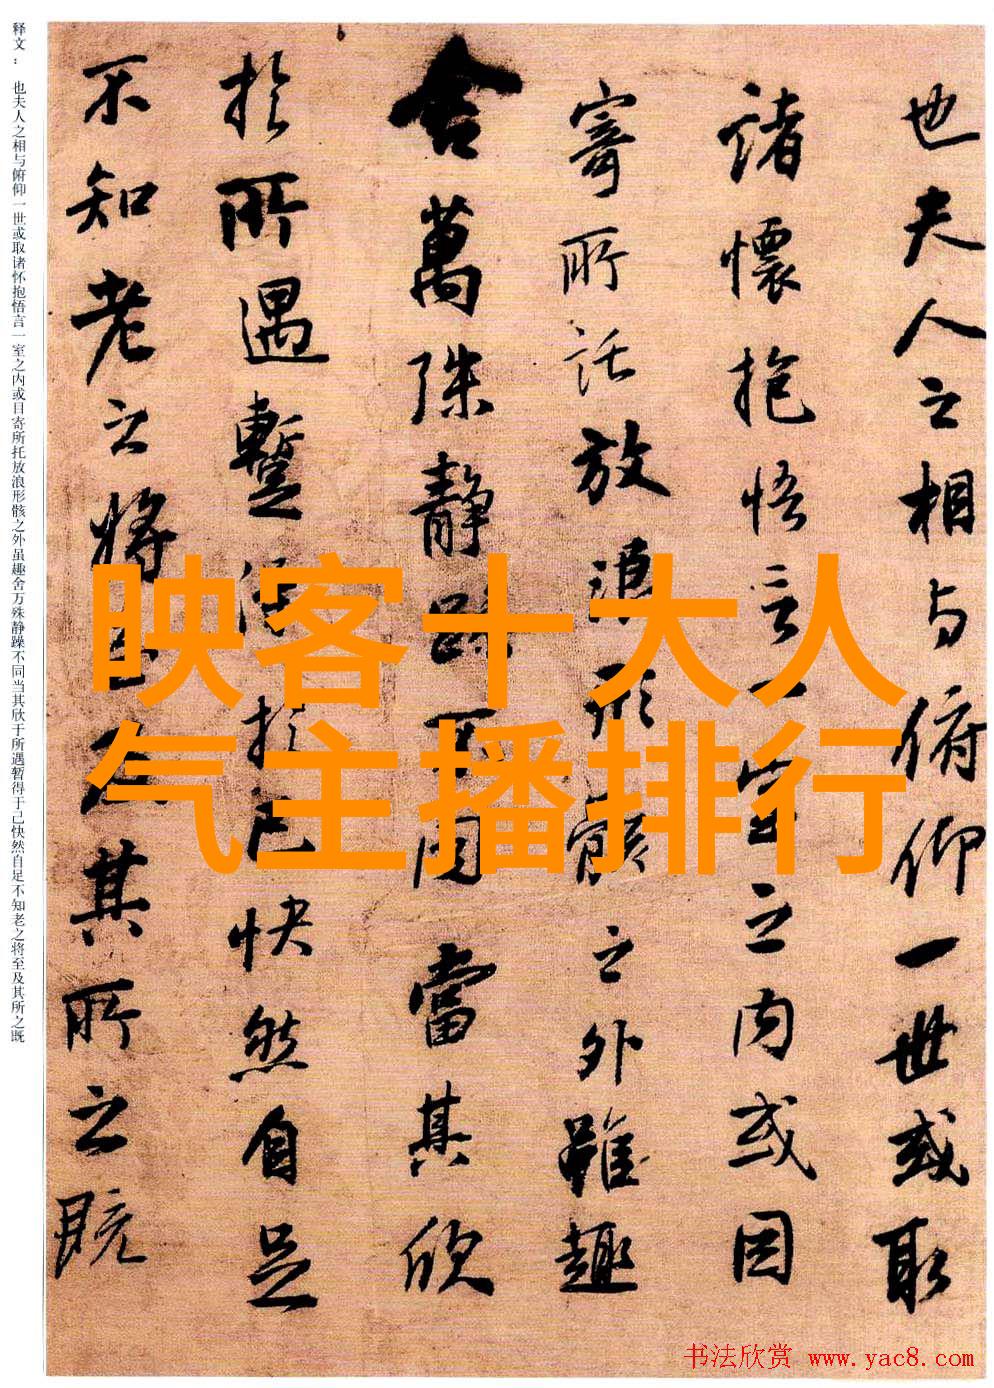 也夫人之相与俯仰一世或取
諸懷抱悟言一室之内或因
寄所託放浪形骸之外雖趣
舍萬殊静躁不同當其欣
於所遇暫得於己快然自足
不知老之將至及其所之既
释文： 也夫人之相与俯仰一世或取诸怀抱悟言一室之内或目寄所托放浪形骸之外虽趣舍万殊静躁不同当其欣于所遇暂得于己快然自足不知老之将至及其所之既
映客十大人
气主播排行
书法欣赏 www.yac8.com